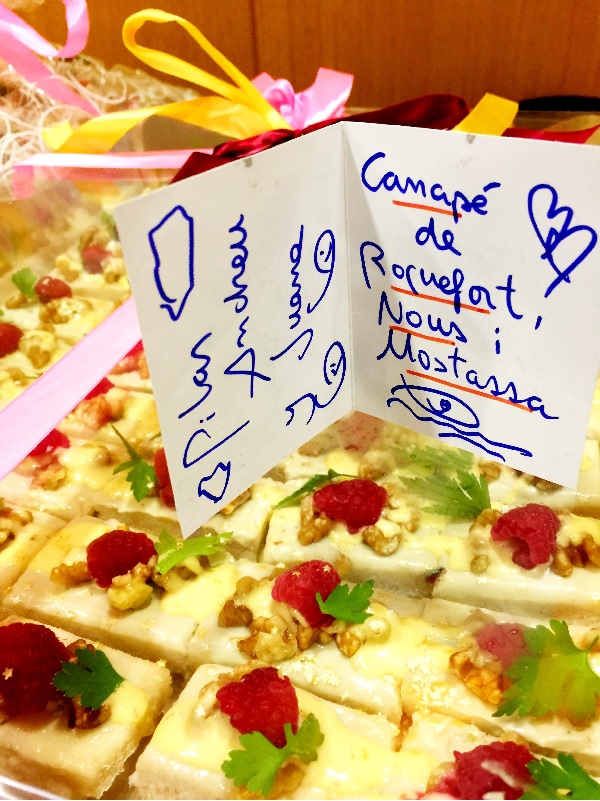 Pilar
Andreu
Juana
Canapé
de
Roquefort,
Nous i
Mostassa